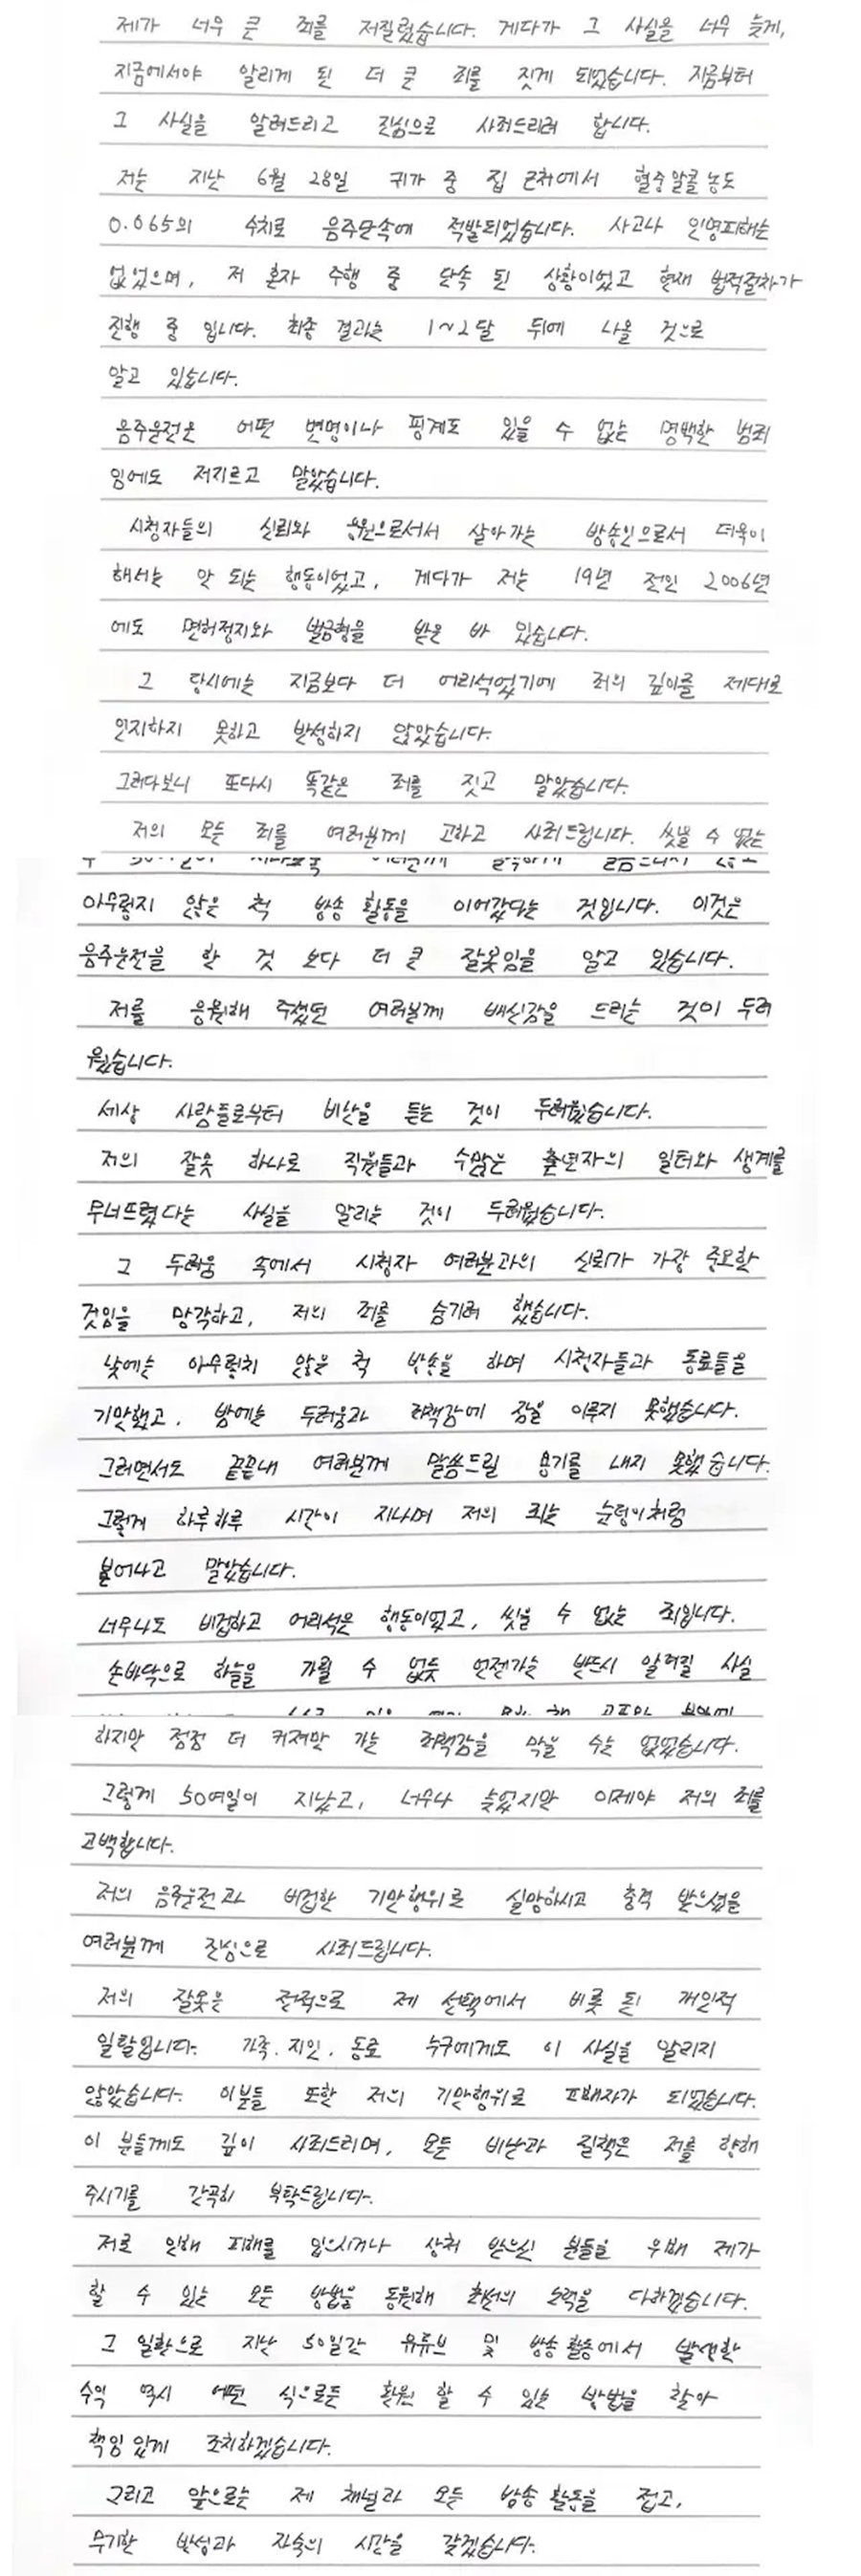 제가 너무 큰 죄를 저질렀습니다. 게다가 그 사실을 너무 늦게,
지금에서야 알리게 된 더 큰 죄를 짓게 되었습니다. 지금부터
그 사실을 알려드리고 진심으로 사죄드리려 합니다.
저는 지난 6월 28일 귀가 중 집 근처에서 혈중알콜농도
0.065의 수치로 음주단속에 적발되었습니다. 사고나 인명피해는
없었으며, 저 혼자 주행 중 단속 된 상황이었고 현재 법적절차가
진행 중 입니다. 최종 결과는 1~2달 뒤에 나올 것으로
알고 있습니다.
음주운전은 어떤 변명이나 핑계도 있을 수 없는 명백한 범죄
임에도 저지르고 말았습니다.
시청자들의 신뢰와 응원으로서서 살아가는 방송인으로서 더욱이
해서는 안 되는 행동이었고, 게다가 저는 19년 전인 2006년
에도 면허정지와 벌금형을 받은 바 있습니다.
그 당시에는 지금보다 더 어리석었기에 죄의 깊이를 제대로
인지하지 못하고 반성하지 않았습니다.
그러다보니 또다시 똑같은 죄를 짓고 말았습니다.
저의 모든 죄를 여러분께 고하고 사죄드립니다. 씻을 수 없는
아무렇지 않은 척 방송 활동을 이어갔다는 것입니다. 이것은
음주운전을 한 것 보다 더 큰 잘못임을 알고 있습니다.
저를 응원해 주셨던 여러분께 배신감을 드리는 것이 두려
웠습니다.
세상 사람들로부터 비난을 듣는 것이 두려웠습니다.
저의 잘못 하나로 직원들과 수많은 출연자의 일터와 생계를
무너뜨렸다는 사실을 알리는 것이 두려웠습니다.
그 두려움 속에서 시청자 여러분과의 신뢰가 가장 중요한
것임을 망각하고, 저의 죄를 숨기려 했습니다.
낮에는 아무렇치 않은 척 방송을 하며 시청자들과 동료들을
기만했고, 밤에는 두려움과 죄책감에 잠을 이루지 못했습니다.
그러면서도 끝끝내 여러분께 말씀드릴 용기를 내지 못했습니다.
그렇게 하루하루 시간이 지나며 저의 죄는 눈덩이처럼
불어나고 말았습니다.
너무나도 비겁하고 어리석은 행동이었고, 씻을 수 없는 죄입니다.
손바닥으로 하늘을 가릴 수 없듯 언젠가는 반드시 알려질 사실
하지만 점점 더 커져만 가는 죄책감을 막을 수는 없었습니다.
그렇게 50여일이 지났고, 너무나 늦었지만 이제야 저의 죄를
고백합니다.
저의 음주운전과 비겁한 기만행위로 실망하시고 충격 받으셨을
여러분께 진심으로 사죄드립니다.
저의 잘못은 전적으로 제 선택에서 비롯 된 개인적
일탈입니다. 가족. 지인. 동료 누구에게도 이 사실을 알리지
않았습니다. 이분들 또한 저의 기만행위로 피해자가 되었습니다.
이 분들께도 깊이 사죄드리며, 모든 비난과 질책은 저를 향해
주시기를 간곡히 부탁드립니다.
저로 인해 피해를 입으시거나 상처 받으신 분들을 위해 제가
할 수 있는 모든 방법을 동원해 최선의 노력을 다하겠습니다.
그 일환으로 지난 50일간 유튜브 및 방송 활동에서 발생한
수익 역시 어떤 식으로든 환원 할 수 있는 방법을 찾아
책임 있게 조치하겠습니다.
그리고 앞으로는 제 채널과 모든 방송 활동을 접고,
무기한 반성과 자숙의 시간을 갖겠습니다.